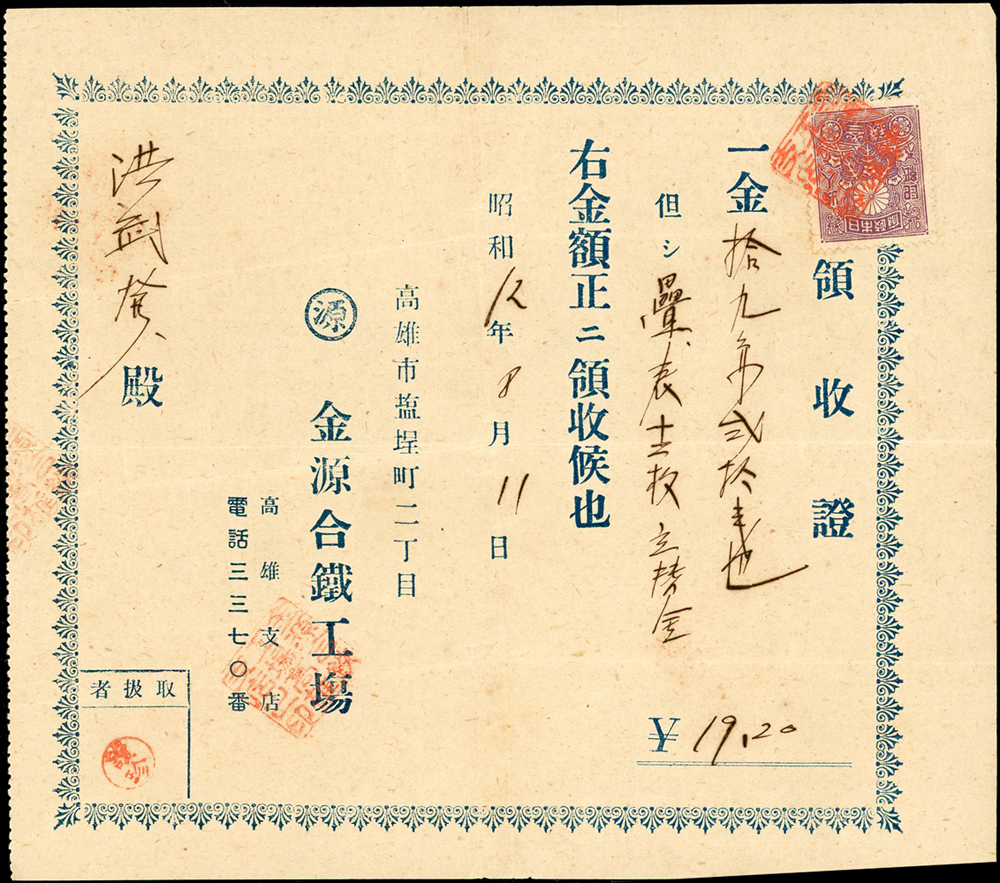 領收證
一金拾九円弐拾銭也
但シ疊表十二枚立替金
¥19.20
右金額正ニ領收候也
昭和12年8月11日
高雄市塩埕町二丁目
源 金源合鐵工塲
高雄支店
電話三三七〇番
洪 殿
取扱者